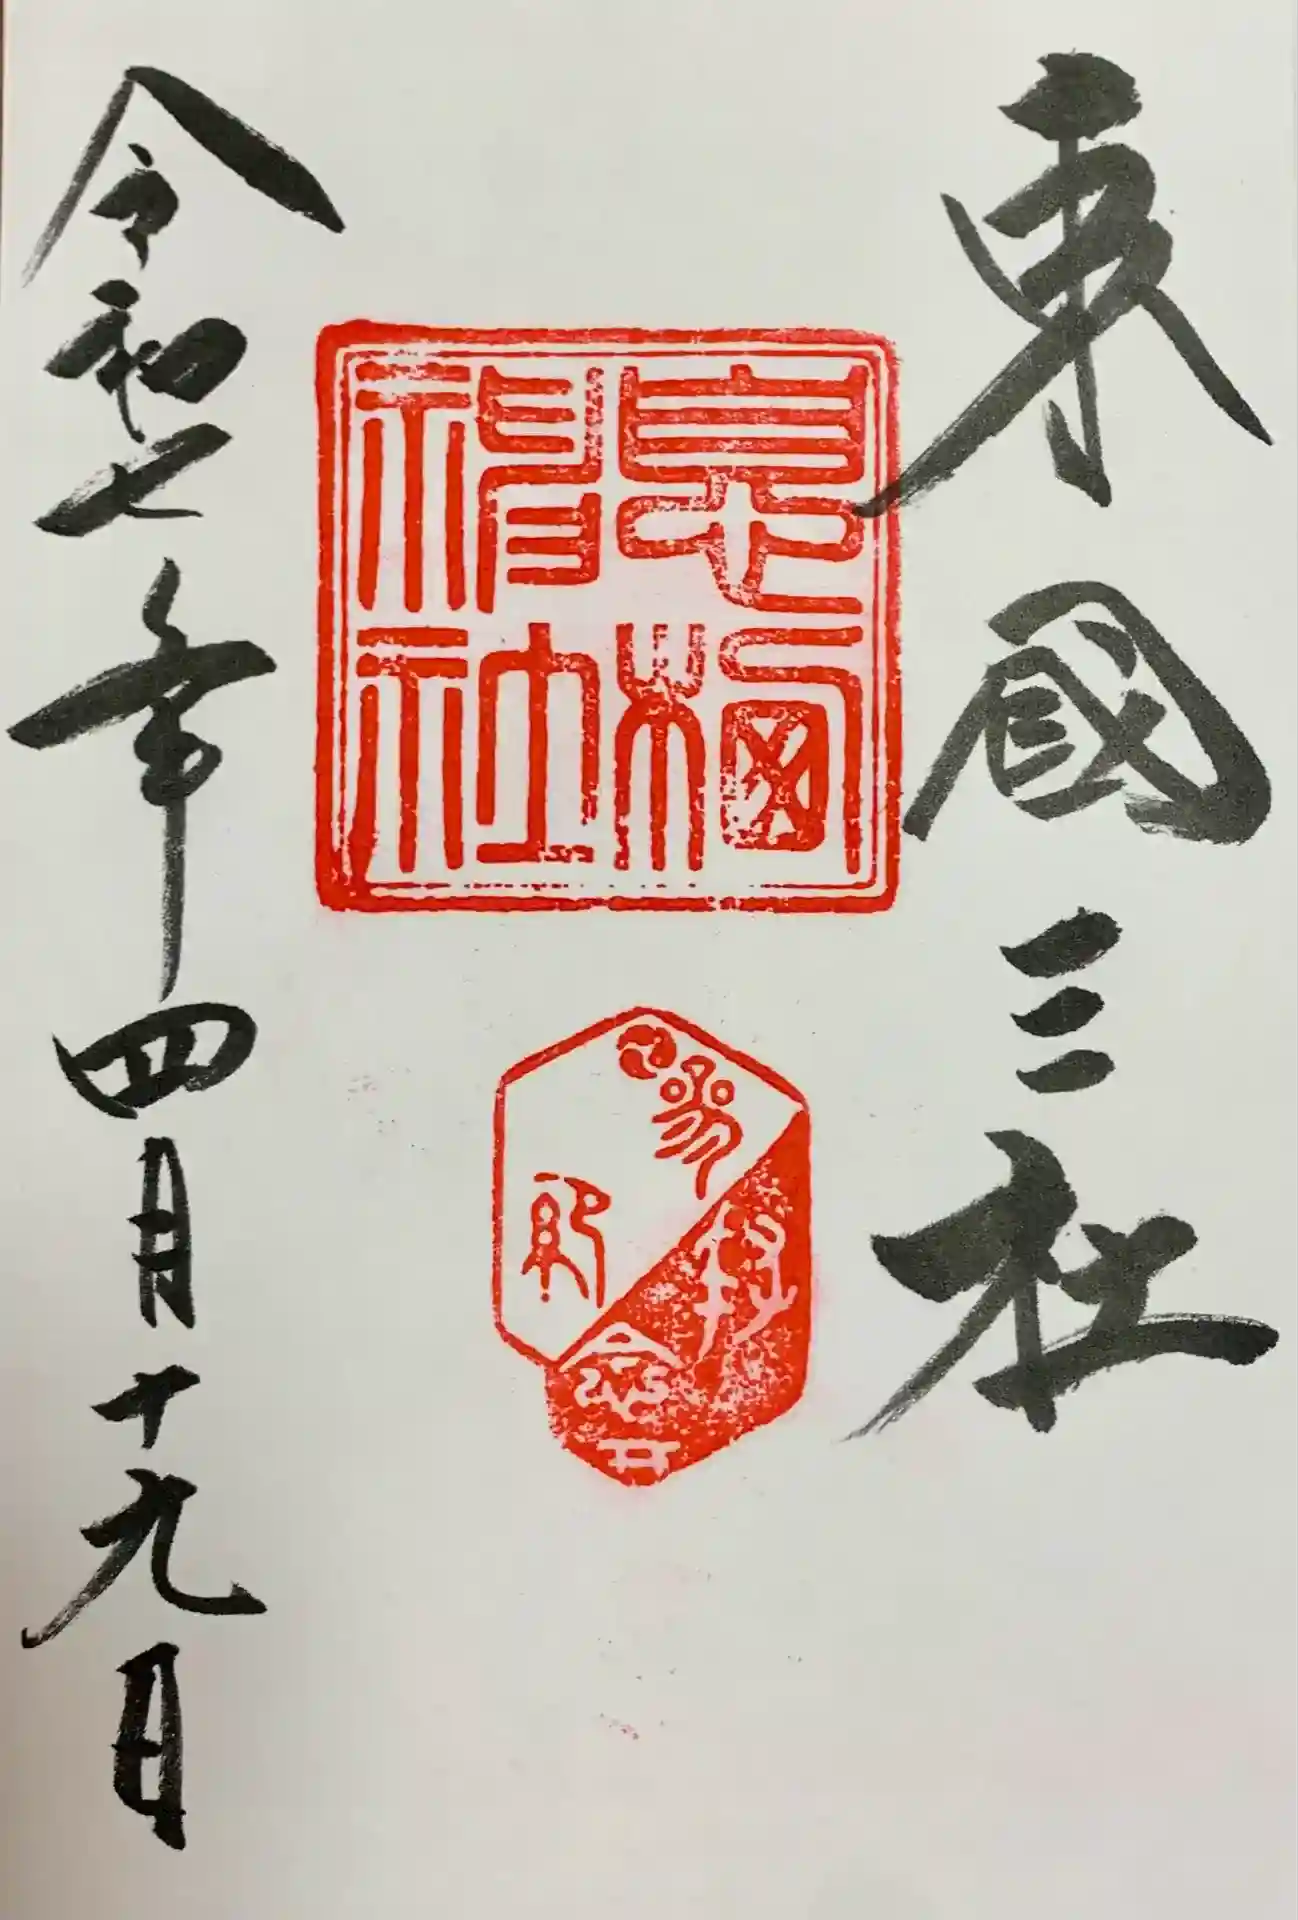 東國三社
息栖
神社
令和七年四月十九日